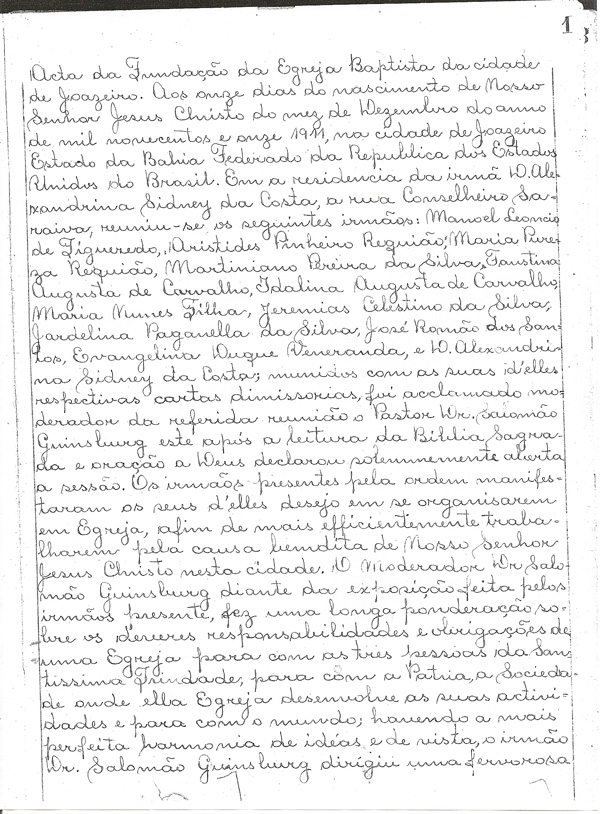 1
Acta da Fundação da Egreja Baptista da cidade
de Joazeiro. Aos onze dias do nascimento de Nosso
Senhor Jesus Christo do mez de Dezembro do anno
de mil novecentos e onze 1911, na cidade de Joazeiro
Estado da Bahia Federado da Republica dos Estados
Unidos do Brasil. Em a residencia da irmã D. Ale-
xandrina Sidney da Costa, a rua Conselheiro Sa-
raiva, reuniu-se os seguintes irmãos: Manoel Leoncio
de Figueredo, Aristides Pinheiro Requião, Maria Pure-
za Requião, Martiniano Pereira da Silva, Faustina
Augusta de Carvalho, Idalina Augusta de Carvalho,
Maria Nunes Filha, Jeremias Celestino da Silva,
Jardelina Paganella da Silva, José Romão dos San-
tos, Evangelina Duque Veneranda, e D. Alexandri-
na Sidney da Costa; munidos com as suas d'elles
respectivas cartas dimissorias, foi acclamado mo-
derador da referida reunião o Pastor Dr. Salomão
Guinsburg este após a leitura da Biblia Sagra-
da e oração a Deus declarou solemnemente aberta
a sessão. Os irmãos presentes pela ordem manifes-
taram os seus d'elles desejo em se organisarem
em Egreja, afim de mais efficientemente traba-
lharem pela causa bemdita de Nosso Senhor
Jesus Christo nesta cidade. O Moderador Dr Salo-
mão Guinsburg diante da exposição feita pelos
irmãos presente, fez uma longa ponderação so-
bre os deveres responsabilidades e obrigações de
uma Egreja para com as tres pessoas da San-
tissima Trindade, para com a Patria, a Socieda-
de onde ella Egreja desenvolve as suas activi-
dades e para com o mundo; havendo a mais
perfeita harmonia de idéas e de vista, o irmão
Dr. Salomão Guinsburg dirigiu uma fervorosa